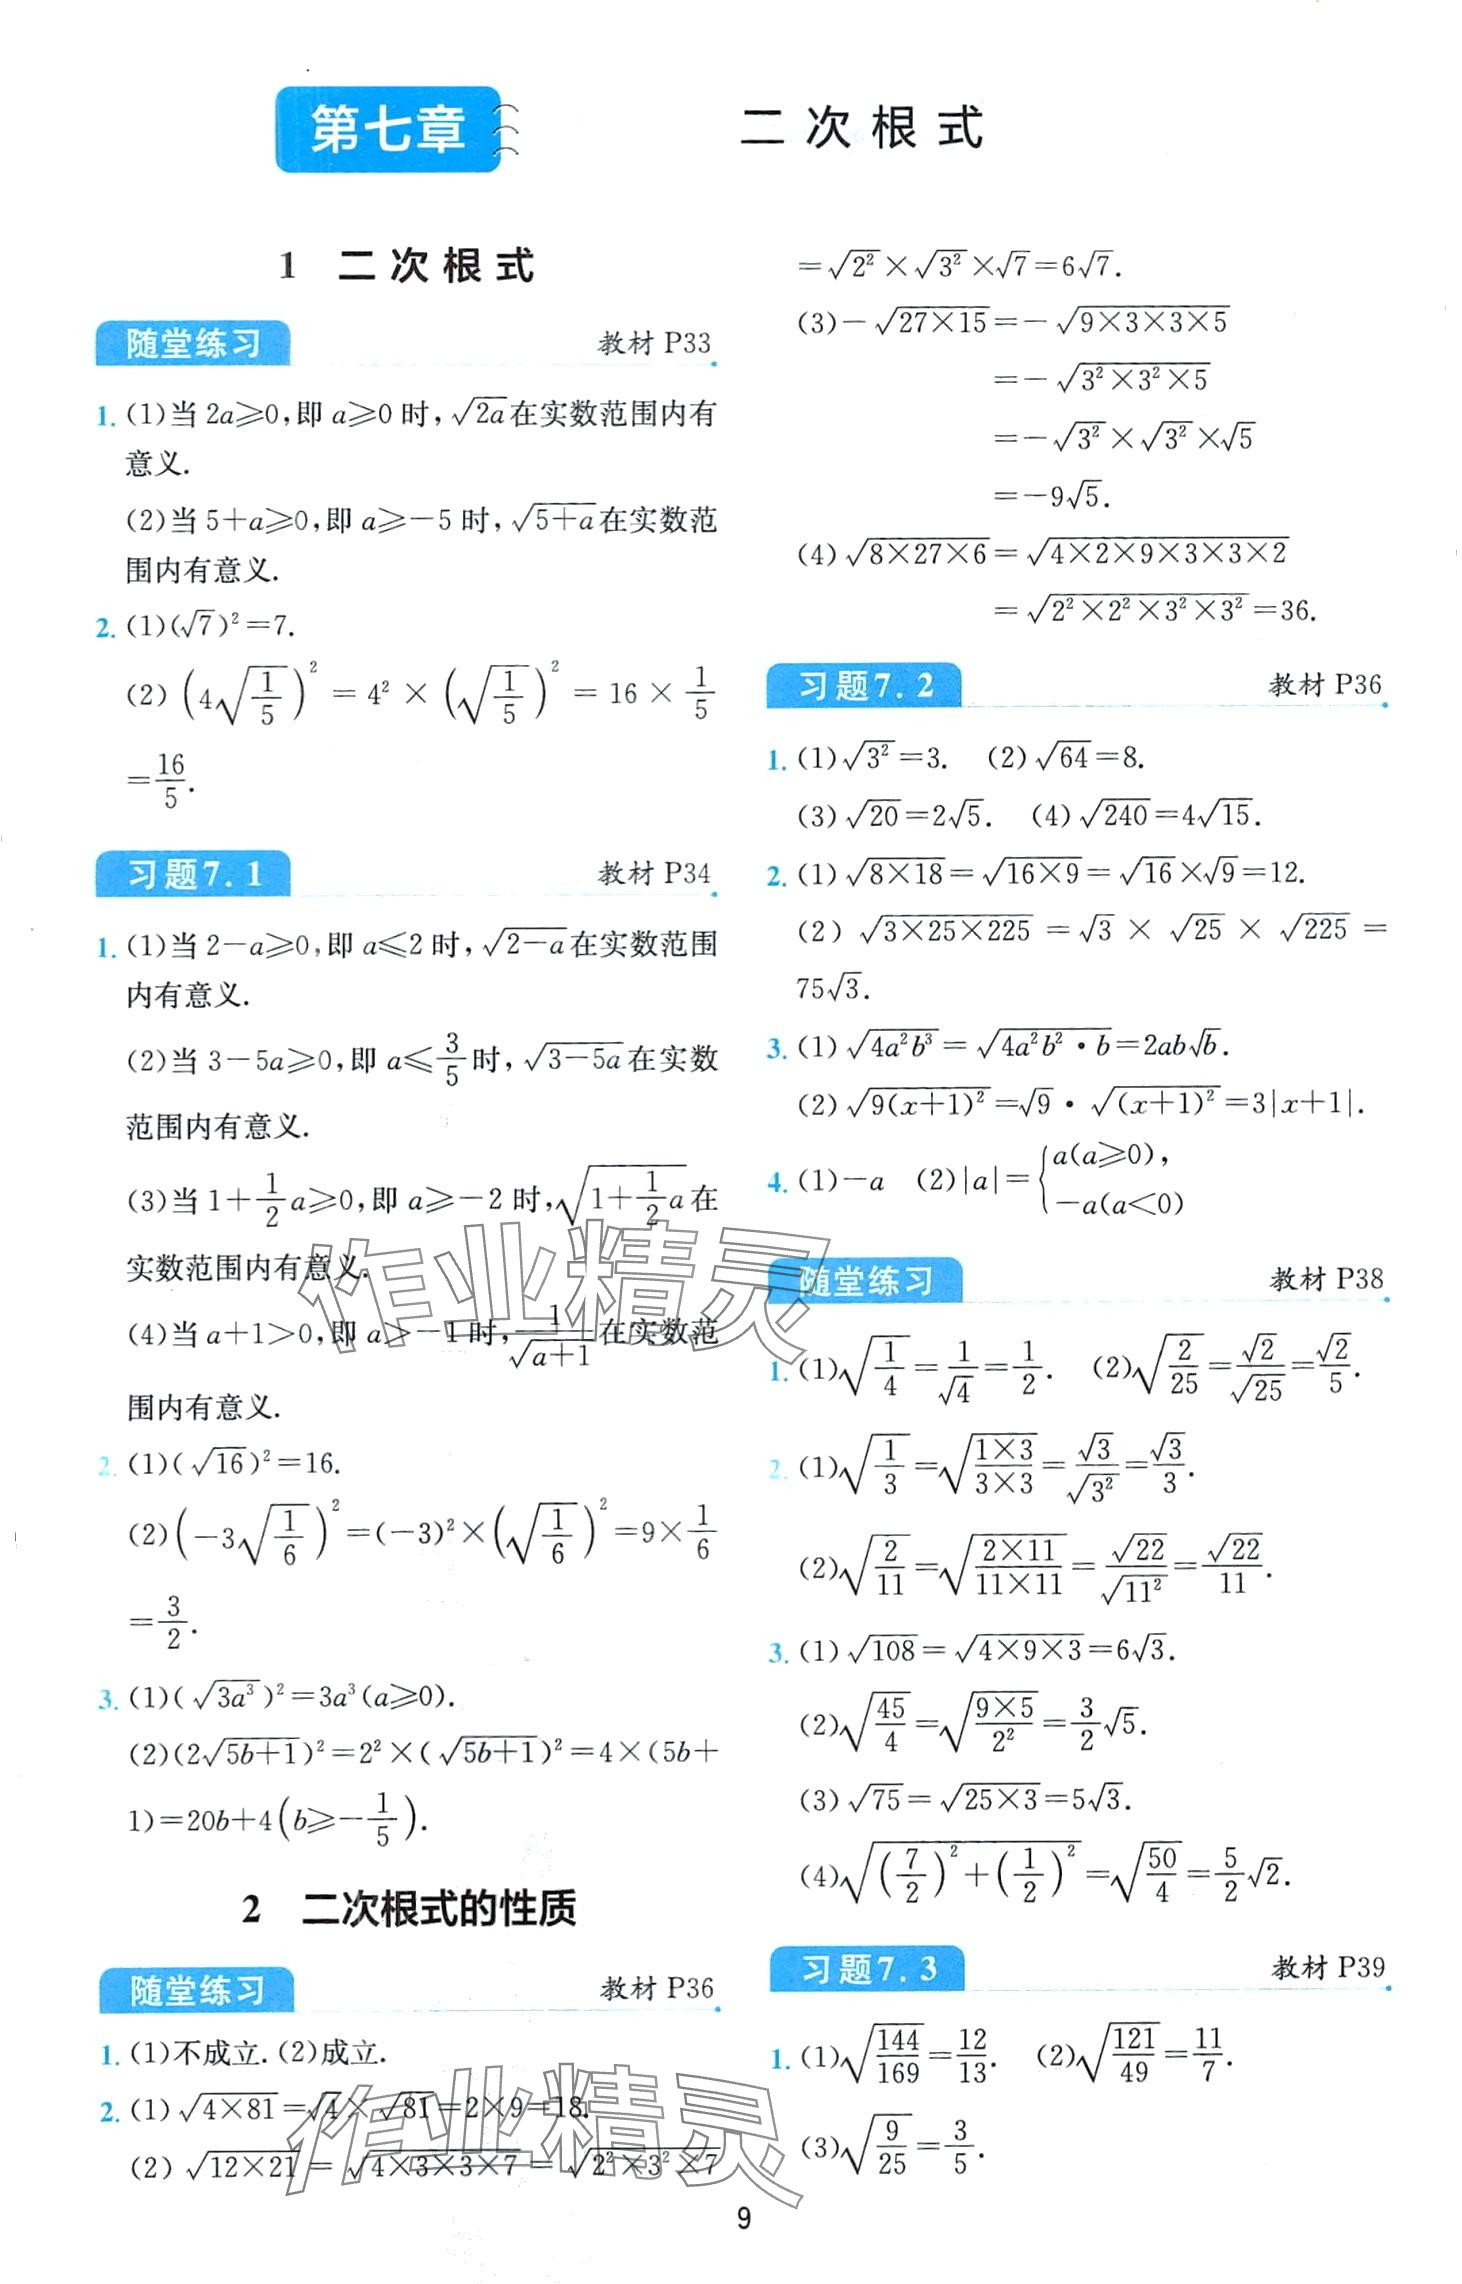 第七章 二次根式
1 二次根式
随堂练习 教材 P33
1. (1)当 2a≥0,即 a≥0 时,√(2a)在实数范围内有
意义.
(2)当 5+a≥0,即 a≥-5 时,√(5+a)在实数范
围内有意义.
2. (1)(√7)²=7.
(2)(4√(1/5))²=4²×(√(1/5))²=16×1/5
=16/5.
习题7.1 教材 P34
1. (1)当 2-a≥0,即 a≤2 时,√(2-a)在实数范围
内有意义.
(2)当 3-5a≥0,即 a≤3/5时,√(3-5a)在实数
范围内有意义.
(3)当 1+1/2a≥0,即 a≥-2 时,√(1+1/2a)在
实数范围内有意义.
(4)当 a+1>0,即 a>-1 时,1/√(a+1)在实数范
围内有意义.
2. (1)(√16)²=16.
(2)(-3√(1/6))²=(-3)²×(√(1/6))²=9×1/6
=3/2.
3. (1)(√(3a³))²=3a³(a≥0).
(2)(2√(5b+1))²=2²×(√(5b+1))²=4×(5b+
1)=20b+4(b≥-1/5).
2 二次根式的性质
随堂练习 教材 P36
1. (1)不成立.(2)成立.
2. (1)√(4×81)=√4×√81=2×9=18.
(2)√(12×21)=√(4×3×3×7)=√(2²×3²×7)
=√(2²)×√(3²)×√7=6√7.
(3)-√(27×15)=-√(9×3×3×5)
=-√(3²×3²×5)
=-√(3²)×√(3²)×√5
=-9√5.
(4)√(8×27×6)=√(4×2×9×3×3×2)
=√(2²×2²×3²×3²)=36.
习题7.2 教材 P36
1. (1)√(3²)=3. (2)√64=8.
(3)√20=2√5. (4)√240=4√15.
2. (1)√(8×18)=√(16×9)=√16×√9=12.
(2)√(3×25×225)=√3×√25×√225=
75√3.
3. (1)√(4a²b³)=√(4a²b²·b)=2ab√b.
(2)√(9(x+1)²)=√9·√((x+1)²)=3|x+1|.
4. (1)-a (2)|a|={a(a≥0),
-a(a<0)
随堂练习 教材 P38
1. (1)√(1/4)=1/√4=1/2. (2)√(2/25)=√2/√25=√2/5.
2. (1)√(1/3)=√((1×3)/(3×3))=√3/√(3²)=√3/3.
(2)√(2/11)=√((2×11)/(11×11))=√22/√(11²)=√22/11.
3. (1)√108=√(4×9×3)=6√3.
(2)√(45/4)=√((9×5)/2²)=3/2√5.
(3)√75=√(25×3)=5√3.
(4)√((7/2)²+(1/2)²)=√(50/4)=5/2√2.
习题7.3 教材 P39
1. (1)√(144/169)=12/13. (2)√(121/49)=11/7.
(3)√(9/25)=3/5.
作业精灵
作业精灵
9